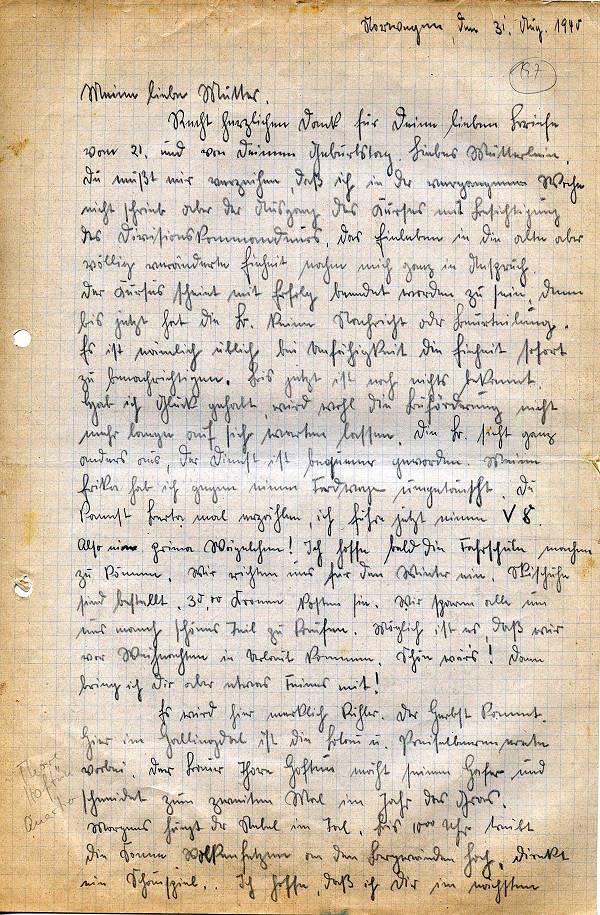 Norwegen, den 31. Aug. 1940
197
Meine liebe Mutter.
Recht herzlichen Dank für Deine lieben Briefe
vom 21. und von Deinem Geburtstag. Liebes Mütterlein,
Du mußt mir verzeihen, daß ich in der vergangenen Woche
nicht schrieb aber der Ausgang des Kurses mit Besichtigung
des Divisionskommandeurs, das Einleben in die alte aber
völlig veränderte Einheit nahm mich ganz in Anspruch.
Der Kursus scheint mit Erfolg beendet worden zu sein, denn
bis jetzt hat die Br. keine Nachricht oder Beurteilung.
Es ist nämlich üblich bei Unfähigkeit die Einheit sofort
zu benachrichtigen. Bis jetzt ist noch nichts bekannt.
Hab ich Glück gehabt, wird wohl die Beförderung nicht
mehr lange auf sich warten lassen. Die Br. sieht ganz
anders aus, der Dienst ist bequemer geworden. Meine
Erika hab ich gegen einen Fordwagen umgetauscht. Du
kannst Berta mal erzählen, ich führe jetzt einen V 8.
Also ein prima Wägelchen! Ich hoffe bald die Fahrschule machen
zu können. Wir richten uns für den Winter ein. Skischuhe
sind bestellt. 30,00 Kronen kosten sie. Wir sparen alle um
uns manch schönes Teil zu kaufen. Möglich ist es, daß wir
vor Weihnachten in Urlaub kommen. Schön wär's! Dann
bring ich Dir aber etwas Feines mit!
Es wird hier merklich kühler. Der Herbst kommt.
Hier im Hallingdal ist die u. Preiselbeerenernte
vorbei. Der Bauer Thore mäht seinen Hafer und
schneidet zum zweiten Mal im Jahr das Gras.
Morgens hängt der Nebel im Tal. Bis 1000 Uhr treibt
die Sonne Wolkenfetzen an den Bergwänden hoch, direkt
ein Schauspiel.. Ich hoffe, daß ich Dir im nächsten